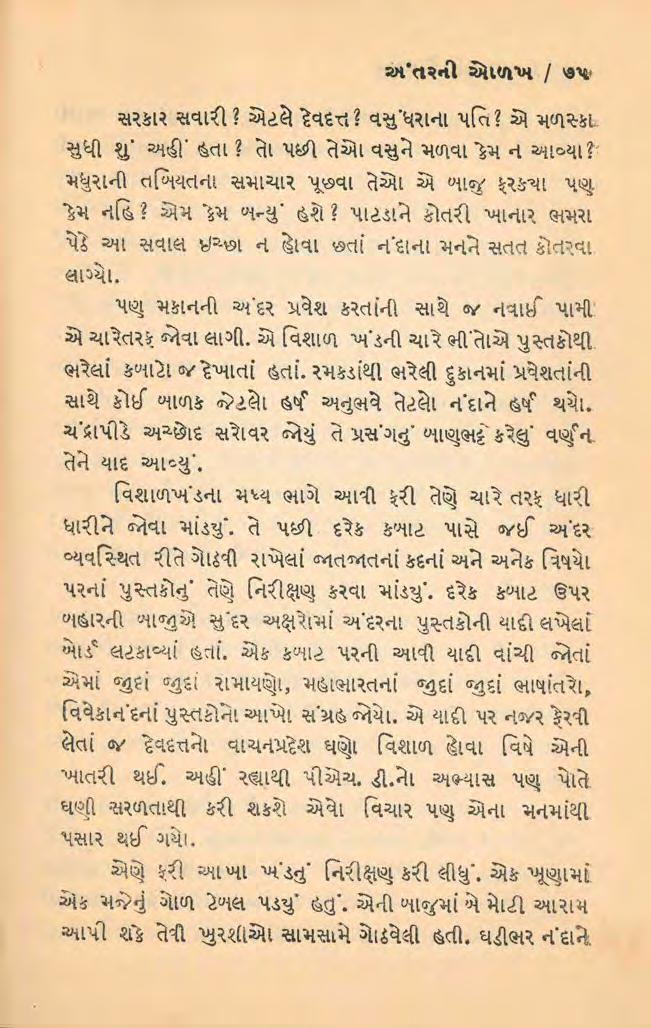 અંતરની ઓળખ / ૭૫
સરકાર સવારી ? એટલે દેવદત્ત ? વસુંધરાના પતિ ? એ મળસ્કા
સુધી શું અહીં હતા ? તો પછી તેઓ વસુને મળવા કેમ ન આવ્યા ?
મધુરાની તબિયતના સમાચાર પૂછવા તેઓ એ બાજુ ફરક્યા પણ
કેમ નહિ ? એમ કેમ બન્યું હશે ? પાટડાને કોતરી ખાનાર ભમરા
પેઠે આ સવાલ ઇચ્છા ન હોવા છતાં નંદાના મનને સતત કોતરવા
લાગ્યો.
પણ મકાનની અંદર પ્રવેશ કરતાંની સાથે જ નવાઈ પામી
એ ચારેતરફ જોવા લાગી. એ વિશાળ ખંડની ચારે ભીંતોએ પુસ્તકોથી
ભરેલાં કબાટો જ દેખાતાં હતાં. રમકડાંથી ભરેલી દુકાનમાં પ્રવેશતાંની
સાથે કોઈ બાળક જેટલો હર્ષ અનુભવે તેટલો નંદાને હર્ષ થયો.
ચંદ્રાપીડે અચ્છોદ સરોવર જોયું તે પ્રસંગનું બાણભટ્ટે કરેલું વર્ણન
તેને યાદ આવ્યું.
વિશાળખંડના મધ્ય ભાગે આવી ફરી તેણે ચારે તરફ ધારી
ધારીને જોવા માંડયું. તે પછી દરેક કબાટ પાસે જઈ અંદર
વ્યવસ્થિત રીતે ગોઠવી રાખેલાં જાતજાતનાં કદનાં અને અનેક વિષયો
પરનાં પુસ્તકોનું તેણે નિરીક્ષણ કરવા માંડયું. દરેક કબાટ ઉપર
બહારની બાજુએ સુંદર અક્ષરોમાં અંદરના પુસ્તકોની યાદી લખેલાં
બોર્ડ લટકાવ્યાં હતાં. એક કબાટ પરની આવી યાદી વાંચી જોતાં
એમાં જુદાં જુદાં રામાયણો, મહાભારતનાં જુદાં જુદાં ભાષાંતરો,
વિવેકાનંદનાં પુસ્તકોનો આખો સંગ્રહ જોયો. એ યાદી પર નજર ફેરવી
લેતાં જ દેવદત્તનો વાચનપ્રદેશ ઘણો વિશાળ હોવા વિષે એની
ખાતરી થઈ. અહીં રહ્યાથી પીએચ. ડી.નો અભ્યાસ પણ પોતે
ઘણી સરળતાથી કરી શકશે એવો વિચાર પણ એના મનમાંથી
પસાર થઈ ગયો.
એણે ફરી આખા ખંડનું નિરીક્ષણ કરી લીધું. એક ખૂણામાં
એક મજેનું ગોળ ટેબલ પડયું હતું. એની બાજુમાં બે મોટી આરામ
આપી શકે તેવી ખુરશીઓ સામસામે ગોઠવેલી હતી. ઘડીભર નંદાને